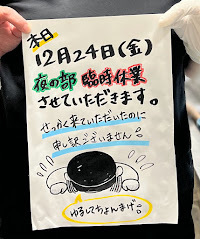 本日
12月24日(金)
夜の部 臨時休業
させていただきます。
せっかく来ていただいたのに
申し訳ございません!
ゆるしてちょんまげ。